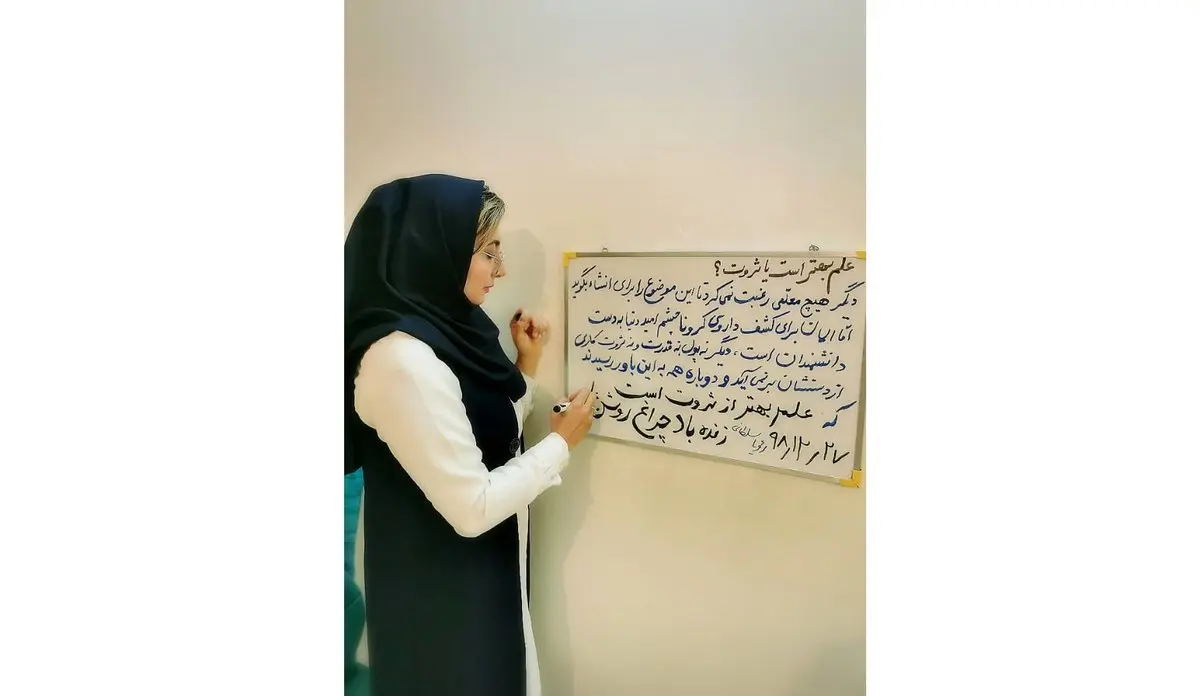 علم بهتر است یا ثروت؟
دیگر هیچ معلمی رغبت نمی‌کرد تا این موضوع را برای انشاء بگوید
اما الان برای کشف داروی کرونا چشم امید دنیا به دست
دانشمندان است، دیگر نه پول نه قدرت و نه ثروت کاری
از دستشان بر نمی آید و دوباره همه به این باور رسیدند
که علم بهتر از ثروت است
زنده باد چراغ روشن
۹۸/۱۲/۲۷